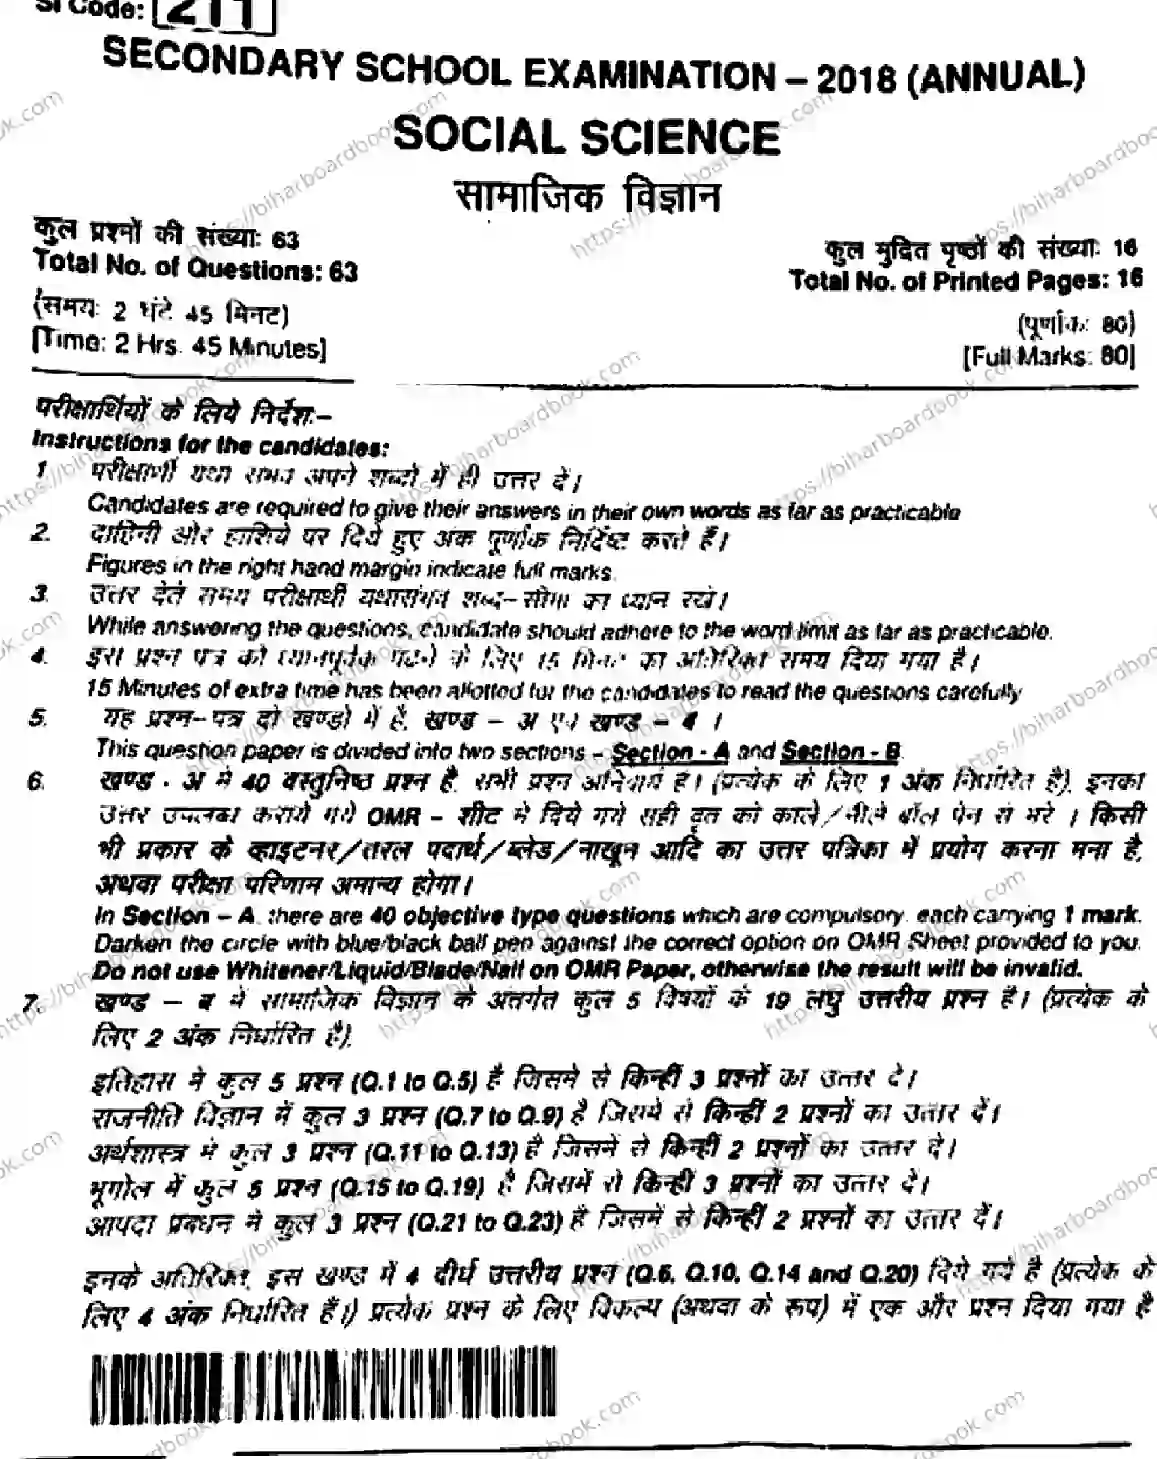 Sl Code: 211
SECONDARY SCHOOL EXAMINATION – 2018 (ANNUAL)
SOCIAL SCIENCE
सामाजिक विज्ञान
कुल प्रश्नों की संख्या: 63
Total No. of Questions: 63
कुल मुद्रित पृष्ठों की संख्या: 16
Total No. of Printed Pages: 16
(समय: 2 घंटे 45 मिनट)
[Time: 2 Hrs. 45 Minutes]
(पूर्णांक: 80)
[Full Marks: 80]
परीक्षार्थियों के लिये निर्देश:–
Instructions for the candidates:
1. परीक्षार्थी यथा संभव अपने शब्दों में ही उत्तर दें।
Candidates are required to give their answers in their own words as far as practicable
2. दाहिनी ओर हाशिये पर दिये हुए अंक पूर्णांक निर्दिष्ट करते हैं।
Figures in the right hand margin indicate full marks.
3. उत्तर देते समय परीक्षार्थी यथासंभव शब्द–सीमा का ध्यान रखें।
While answering the questions, candidate should adhere to the word limit as far as practicable.
4. इस प्रश्न पत्र को ध्यानपूर्वक पढ़ने के लिए 15 मिनट का अतिरिक्त समय दिया गया है।
15 Minutes of extra time has been allotted for the candidates to read the questions carefully
5. यह प्रश्न–पत्र दो खण्डों में है, खण्ड – अ एवं खण्ड – ब ।
This question paper is divided into two sections – Section - A and Section - B.
6. खण्ड - अ में 40 वस्तुनिष्ठ प्रश्न है, सभी प्रश्न अनिवार्य है। (प्रत्येक के लिए 1 अंक निर्धारित है), इनका
उत्तर उपलब्ध कराये गये OMR – शीट में दिये गये सही वृत को काले/नीले बॉल पेन से भरे । किसी
भी प्रकार के व्हाइटनर/तरल पदार्थ/ब्लेड/नाखून आदि का उत्तर पत्रिका में प्रयोग करना मना है,
अथवा परीक्षा परिणाम अमान्य होगा।
In Section – A, there are 40 objective type questions which are compulsory, each carrying 1 mark.
Darken the circle with blue/black ball pen against the correct option on OMR Sheet provided to you.
Do not use Whitener/Liquid/Blade/Nail on OMR Paper, otherwise the result will be invalid.
7. खण्ड – ब में सामाजिक विज्ञान के अंतर्गत कुल 5 विषयों के 19 लघु उत्तरीय प्रश्न है। (प्रत्येक के
लिए 2 अंक निर्धारित है),
इतिहास में कुल 5 प्रश्न (Q.1 to Q.5) है जिसमें से किन्हीं 3 प्रश्नों का उत्तर दें।
राजनीति विज्ञान में कुल 3 प्रश्न (Q.7 to Q.9) है जिसमें से किन्हीं 2 प्रश्नों का उत्तर दें।
अर्थशास्त्र में कुल 3 प्रश्न (Q.11 to Q.13) है जिसमें से किन्हीं 2 प्रश्नों का उत्तर दें।
भूगोल में कुल 5 प्रश्न (Q.15 to Q.19) है जिसमें से किन्हीं 3 प्रश्नों का उत्तर दें।
आपदा प्रबंधन में कुल 3 प्रश्न (Q.21 to Q.23) है जिसमें से किन्हीं 2 प्रश्नों का उत्तर दें।
इनके अतिरिक्त, इस खण्ड में 4 दीर्घ उत्तरीय प्रश्न (Q.6, Q.10, Q.14 and Q.20) दिये गये है (प्रत्येक के
लिए 4 अंक निर्धारित हैं।) प्रत्येक प्रश्न के लिए विकल्प (अथवा के रूप) में एक और प्रश्न दिया गया है
https://biharboardbook.com